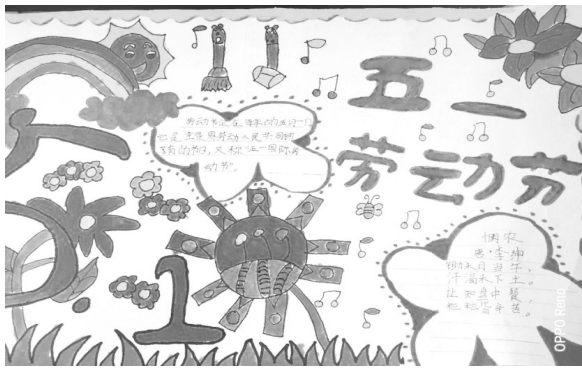 五一
劳动节
劳动节是在每年的五月一日
它是全世界劳动人民共同拥
有的节日，又称五一国际劳
动节。
悯农
唐·李绅
锄禾日当午，
汗滴禾下土。
谁知盘中餐
粒粒皆辛苦。
1
OPPO Reno